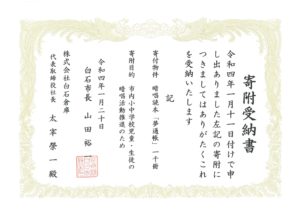 寄附受納書
令和四年一月十一日付けで申
し出ありました左記の寄附に
つきましてはありがたくこれ
を受納いたします
記
寄付物件 暗唱読本「夢通帳」一千冊
寄附目的 市内小中学校児童・生徒の
暗唱活動推進のため
令和四年一月二十日
白石市長 山田裕一
株式会社白石倉庫
代表取締役社長 太宰榮一殿